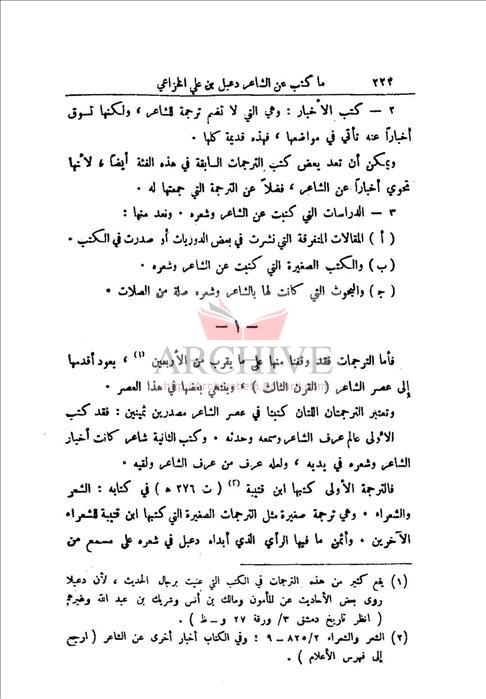 ٢٢٤ ما كتب عن الشاعر دعبل بن علي الخزاعي
٢ — كتب الأخبار : وهي التي لا تضم ترجمة للشاعر ، ولكنها تسوق
أخباراً عنه تأتي في مواضعها ، فهذه قديمة كلها .
ويمكن أن تعد بعض كتب الترجمات السابقة في هذه الفئة أيضاً ، لأنها
تحوي أخباراً عن الشاعر ، فضلاً عن الترجمة التي جمعتها له .
٣ — الدراسات التي كتبت عن الشاعر وشعره . ونعد منها :
( أ ) المقالات المتفرقة التي نشرت في بعض الدوريات أو صدرت في الكتب .
( ب ) والكتب الصغيرة التي كتبت عن الشاعر وشعره .
( ج ) والبحوث التي كانت لها بالشاعر وشعره صلة من الصلات .
— ١ —
ARCHIVE
فأما الترجمات فقد وقفنا منها على ما يقرب من الأربعين (١) ، يعود أقدمها
إلى عصر الشاعر ( القرن الثالث ) ، وينتهي بعضها في هذا العصر .
وتعتبر الترجمتان اللتان كتبتا في عصر الشاعر مصدرين ثمينين : فقد كتب
الأولى عالم عرف الشاعر وسمعه وحدثه . وكتب الثانية شاعر كانت أخبار
الشاعر وشعره في يديه ، ولعله عرف من عرف الشاعر ولقيه .
فالترجمة الأولى كتبها ابن قتيبة (٢) ( ت ٢٧٦ ه ) في كتابه : الشعر
والشعراء . وهي ترجمة صغيرة مثل الترجمات الصغيرة التي كتبها ابن قتيبة للشعراء
الآخرين . وأثمن ما فيها الرأي الذي أبداه دعبل في شعره على مسمع من
(١) يقع كثير من هذه الترجمات في الكتب التي عنيت برجال الحديث ، لأن دعبلا
روى بعض الأحاديث عن المأمون ومالك بن أنس وشريك بن عبد الله وغيرهم
( انظر تاريخ دمشق ٣/ ورقة ٢٧ و — ظ ) .
(٢) الشعر والشعراء ٨٢٥/٢ — ٩ : وفي الكتاب أخبار أخرى عن الشاعر ( ارجع
إلى فهرس الأعلام ) .